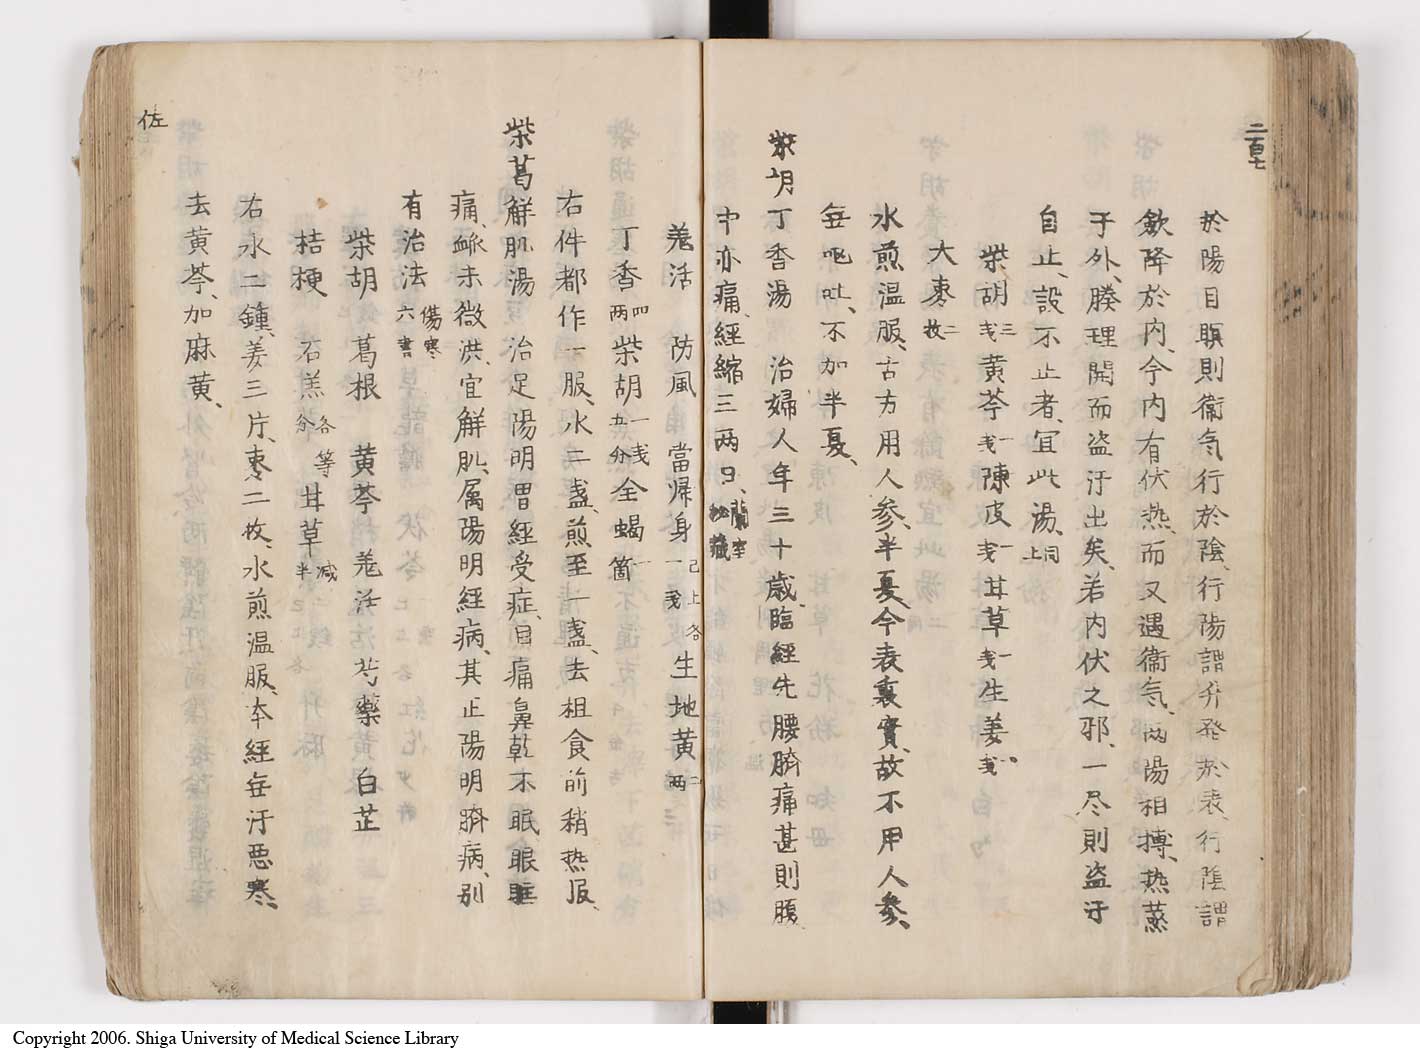 二百七
於陽目瞑則衞気行於陰、行陽謂升発於表、行陰謂
斂降於内、今内有伏热、而又遇衞気、两陽相搏、热蒸
于外、腠理開而盗汗出矣、若内伏之邪、一尽則盗汗
自止、設不止者、宜此湯、同上
柴胡三戔黄芩一戔陳皮一戔甘草一戔生姜戔
大棗二枚
水煎温服、古方用人参、半夏、今表裏實、故不用人参、
無呕吐、不加半夏、
柴胡丁香湯 治婦人年三十歳、臨經先腰臍痛甚則腹
中亦痛、經縮三两日、蘭室秘藏
羗活 防風 當帰身已上各一戔生地黄二两
丁香四两柴胡一戔五分全蝎一箇
右件都作一服、水二盏、煎至一盏、去柤食前稍热服、
柴葛解肌湯 治足陽明胃經受症、目痛鼻乾不眠、眼眶
痛、脉来微洪、宜解肌、属陽明經病、其正陽明腑病、別
有治法傷寒六書
柴胡 葛根 黄芩 羗活 芍藥 白芷
桔梗 石羔各等分甘草减半
右水二鍾、姜三片、棗二枚、水煎温服、本經無汗悪寒、
去黄芩、加麻黄、
佐